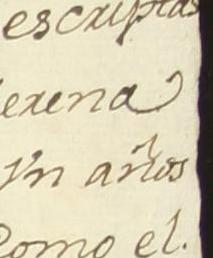 escriptas
erena
Yn años
Como el.